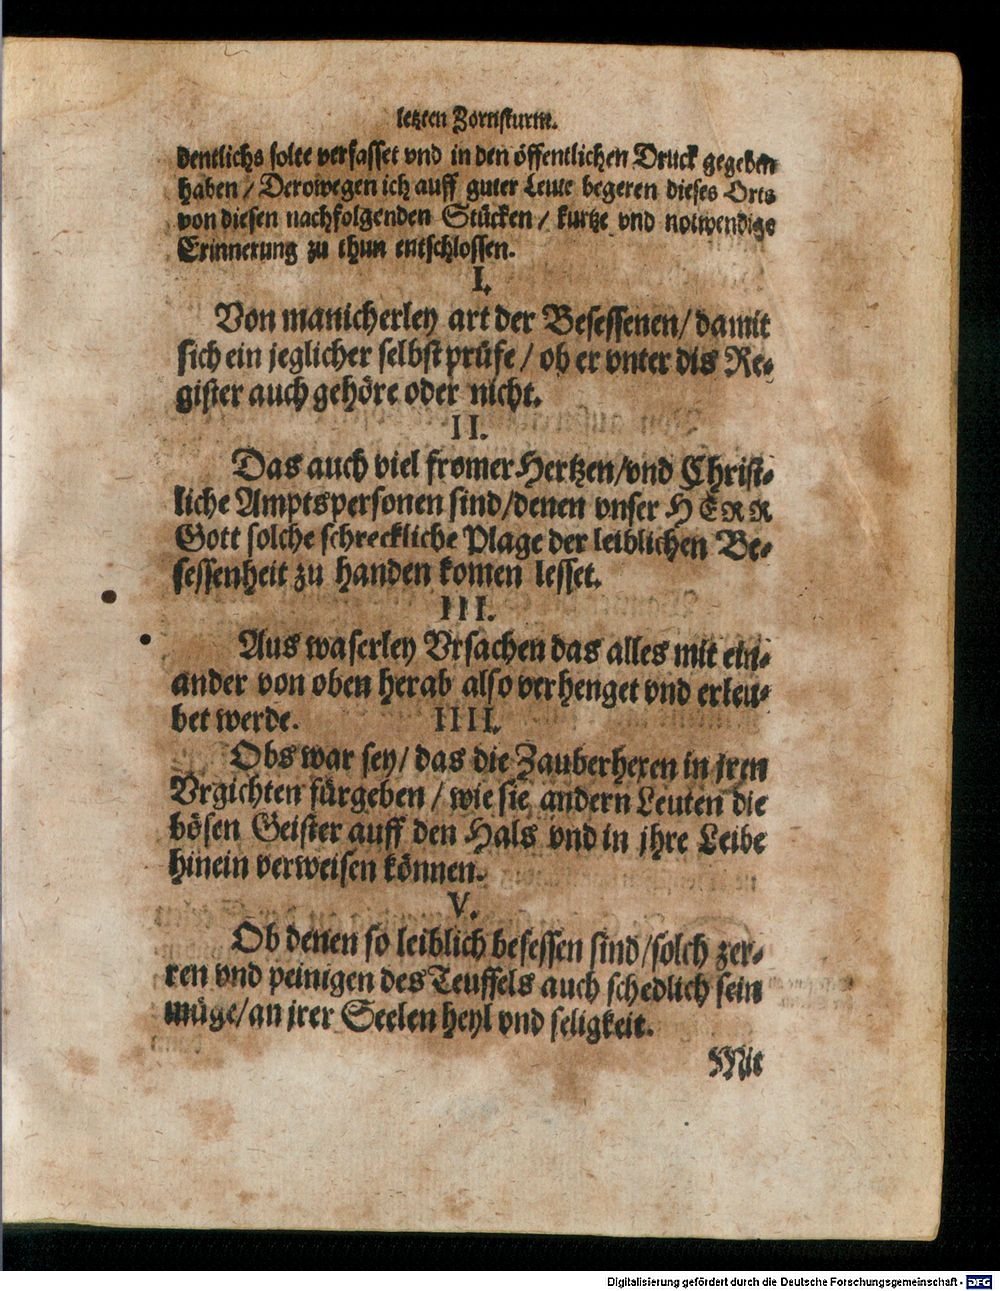 letzten Zornsturm.
dentlichs solte verfasset vnd in den öffentlichen Druck gegeben
haben / Derowegen ich auff guter Leute begeren dieses Orts
von diesen nachfolgenden Stücken / kurtze vnd notwendige
Erinnerung zu thun entschlossen.
I.
Von manicherley art der Besessenen / damit
sich ein jeglicher selbst prüfe / ob er vnter dis Re-
gister auch gehöre oder nicht.
II.
Das auch viel fromer Hertzen / vnd Christ-
liche Amptspersonen sind / denen vnser HERR
Gott solche schreckliche Plage der leiblichen Be-
sessenheit zu handen komen lesset.
III.
Aus waserley Vrsachen das alles mit ein-
ander von oben herab also verhenget vnd erleu-
bet werde. IIII.
Obs war sey / das die Zauberhexen in jren
Vrgichten fürgeben / wie sie andern Leuten die
bösen Geister auff den Hals vnd in jhre Leibe
hinein verweisen können.
V.
Ob denen so leiblich besessen sind / solch zer-
ren vnd peinigen des Teuffels auch schedlich sein
müge / an jrer Seelen heyl vnd seligkeit.
Mit
Digitalisierung gefördert durch die Deutsche Forschungsgemeinschaft - DFG